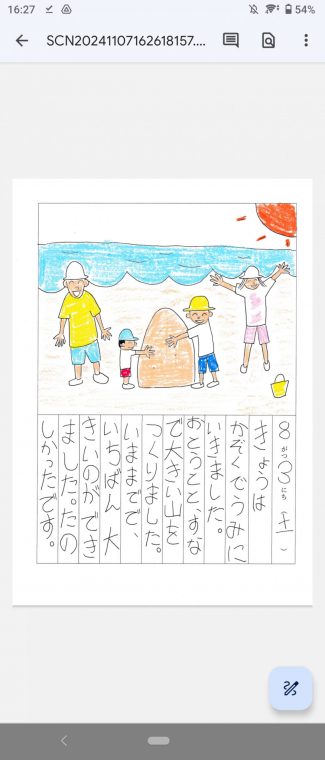 16:27
54%
SCN20241107162618157....
8がつ3にち(土)
きょうは
かぞくでうみに
いきました。
おとうとと、すな
で大きい山を
つくりました。
いままでで、
いちばん大
きいのができ
ました。たの
しかったです。